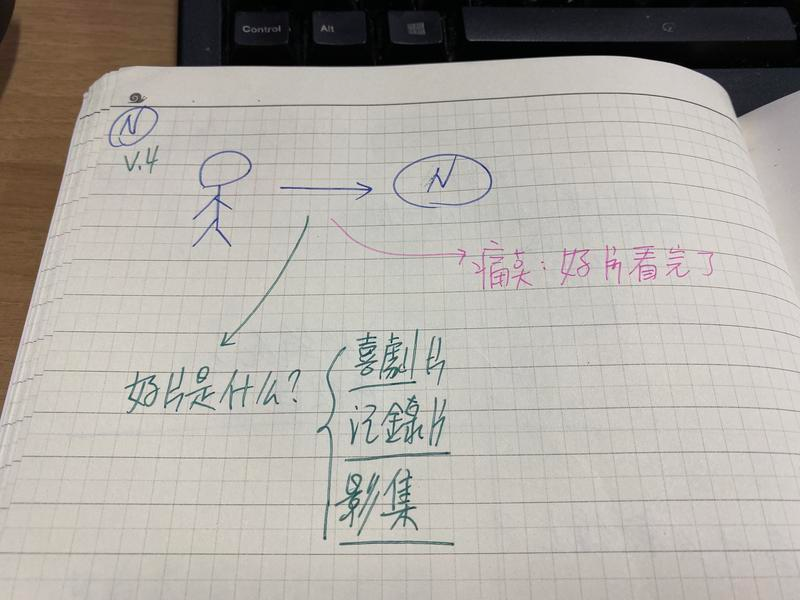 Control
Alt
N
V.4
N
痛点:好片看完了
好片是什么?
喜劇片
记錄片
影集